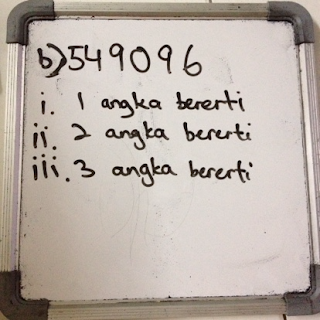 b) 549096
i. 1 angka bererti
ii. 2 angka bererti
iii. 3 angka bererti